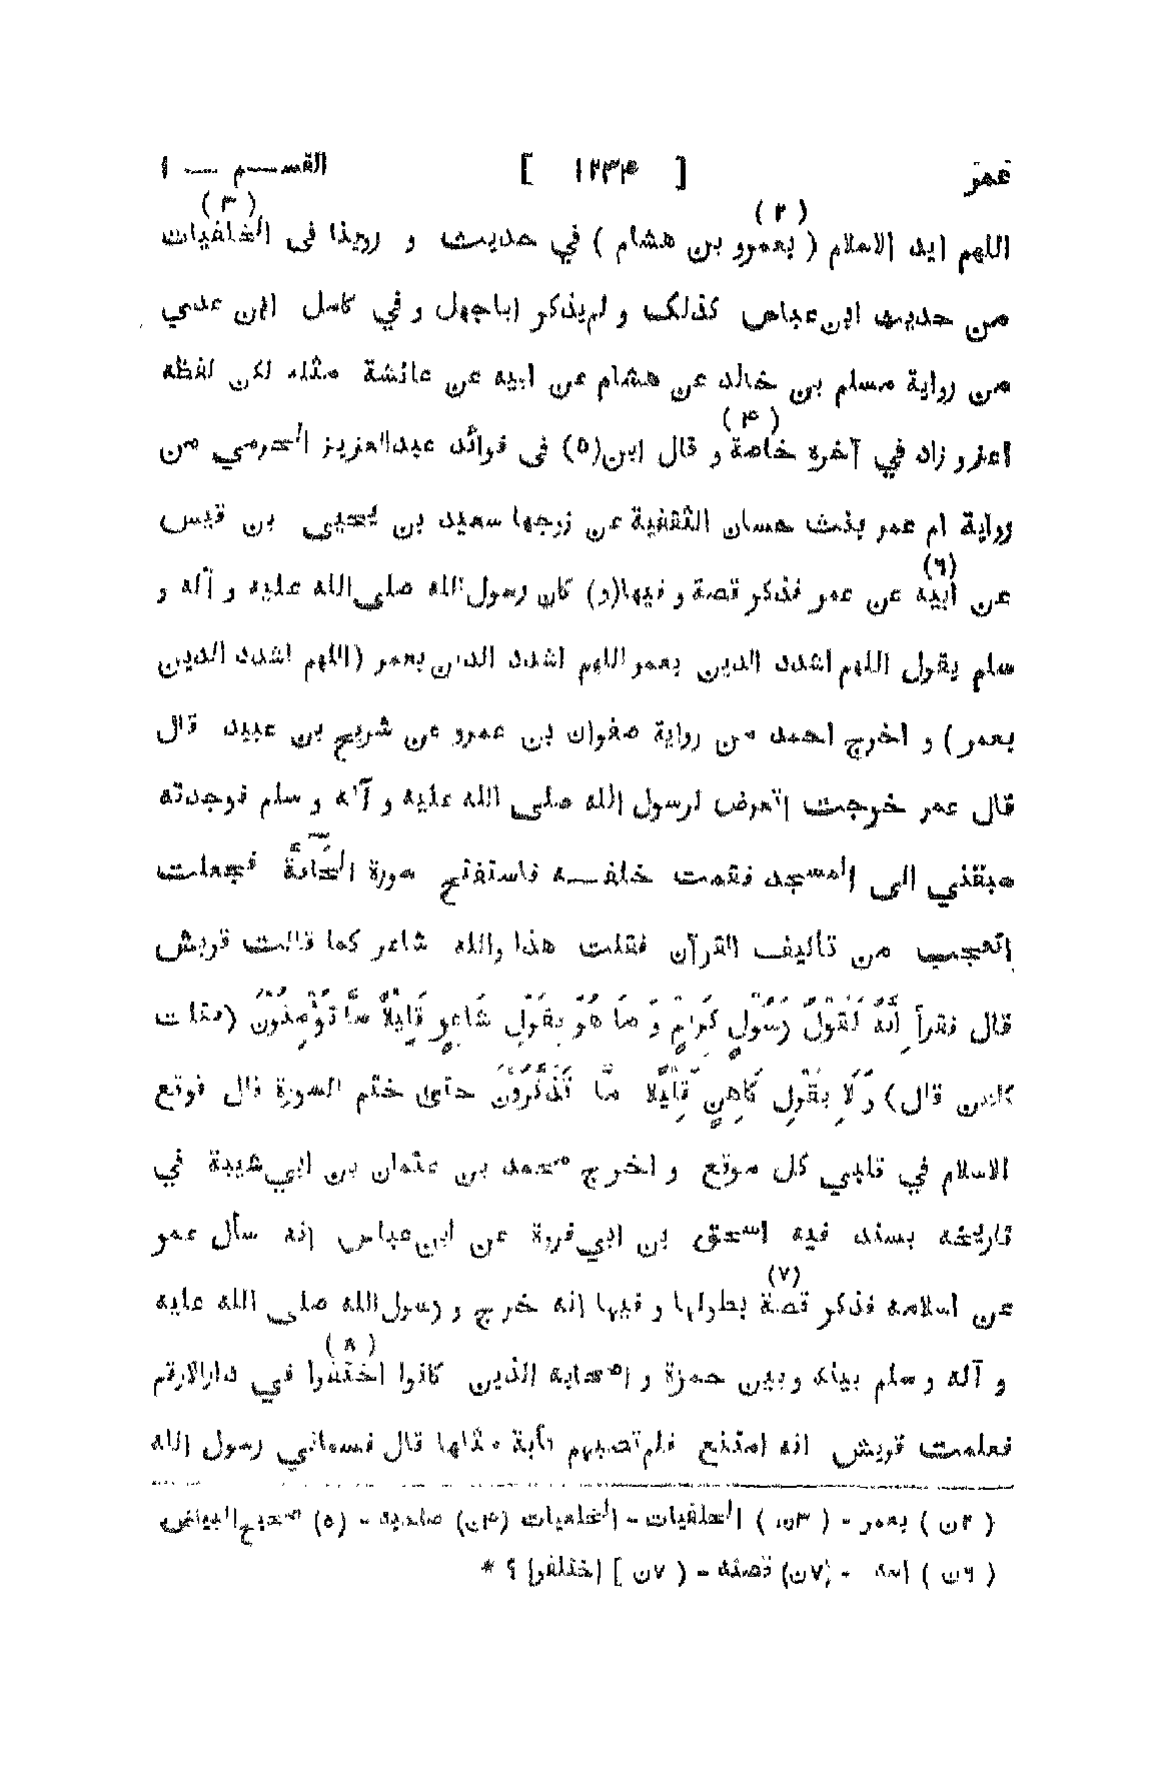 عمر [ ١٢٣۴ ] القســم — ١
(٢) (٣)
اللهم ايد الاسلام ( بعمرو بن هشام ) في حديث و روينا فى الخلفيات
من حديث ابن عباس كذلك و لم يذكر اباجهل و في كامل ابن عدي
من رواية مسلم بن خالد عن هشام عن ابيه عن عائشة مثله لكن لفظه
(۴)
اعز و زاد في آخره خاصة و قال ابن(٥) فى فوائد عبدالعزيز الحرمي من
رواية ام عمر بنت حسان الثقفية عن زوجها سعيد بن يحيى بن قيس
(٦)
عن ابيه عن عمر فذكر قصة و فيها(و) كان رسول الله صلى الله عليه و آله و
سلم يقول اللهم اشدد الدين بعمر اللهم اشدد الدين بعمر (اللهم اشدد الدين
بعمر) و اخرج احمد من رواية صفوان بن عمرو عن شريح بن عبيد قال
قال عمر خرجت اتعرض لرسول الله صلى الله عليه و آله و سلم فوجدته
سبقني الى المسجد فقمت خلفــه فاستفتح سورة الحَآقَّة فجعلت
اتعجب من تأليف القرآن فقلت هذا والله شاعر كما قالت قريش
قال فقرأ إِنَّهُ لَقَوْلُ رَسُوْلٍ كَرِيْمٍ وَ مَا هُوَ بِقَوْلِ شَاعِرٍ قَلِيْلًا مَّا تُؤْمِنُوْنَ (فقلت
كاهن قال) وَلَا بِقَوْلِ كَاهِنٍ قَلِيْلًا مَّا تَذَكَّرُوْنَ حتى ختم السورة قال فوقع
الاسلام في قلبي كل موقع و اخرج محمد بن عثمان بن ابي شيبة في
تاريخه بسند فيه اسحق بن ابي فروة عن ابن عباس انه سأل عمر
(٧)
عن اسلامه فذكر قصة بطولها و فيها انه خرج و رسول الله صلى الله عليه
(٨)
و آله و سلم بينه و بين حمزة و اصحابه الذين كانوا اختفوا في دارالارقم
فعلمت قريش انه امتنع فلم تصبهم كآبة مثلها قال فسماني رسول الله
( ٢ن ) بعمر - ( ٣ن ) الحلفيات - الخلعيات (۴ن) صلحيه - (٥) صحيح البياض
( ٦ن ) امه - (٧ن) قصته - ( ٧ن ] اختلفوا ؟ *